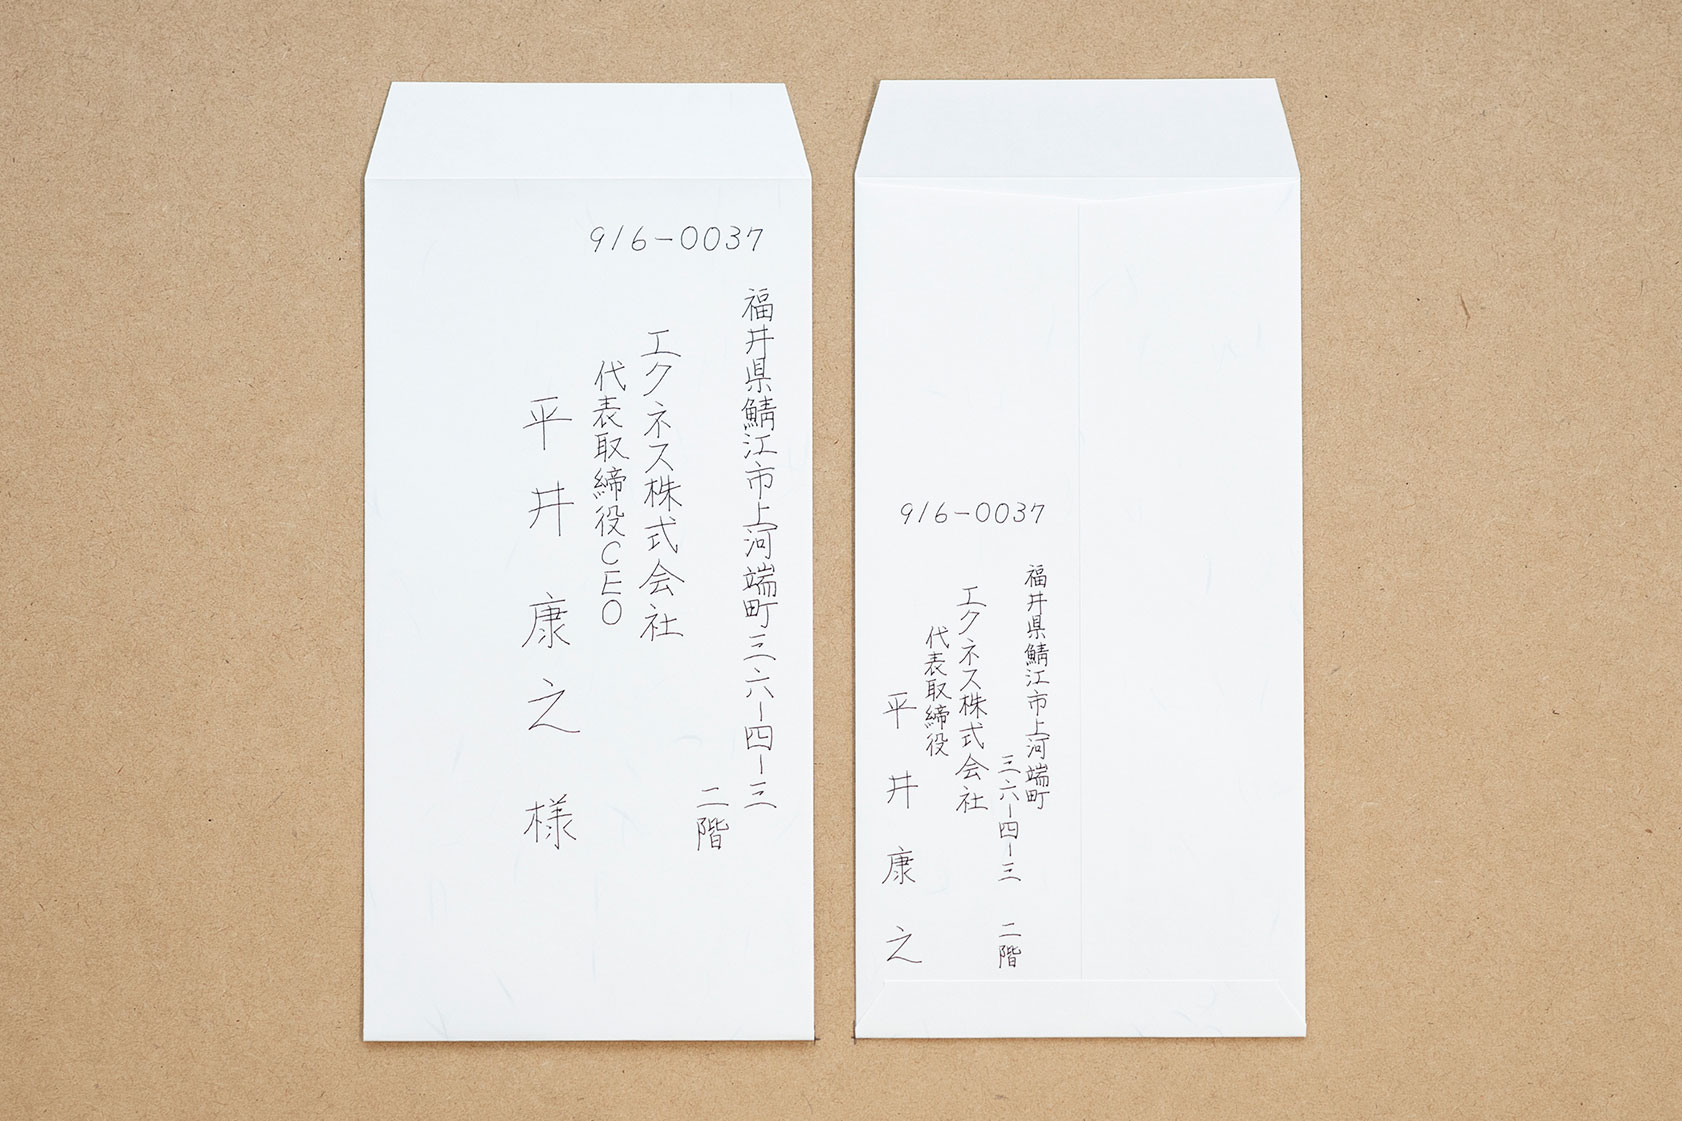 916-0037
福井県鯖江市上河端町三六-四-三
二階
エクネス株式会社
代表取締役CEO
平井康之様
916-0037
福井県鯖江市上河端町
三六-四-三 二階
エクネス株式会社
代表取締役
平井康之